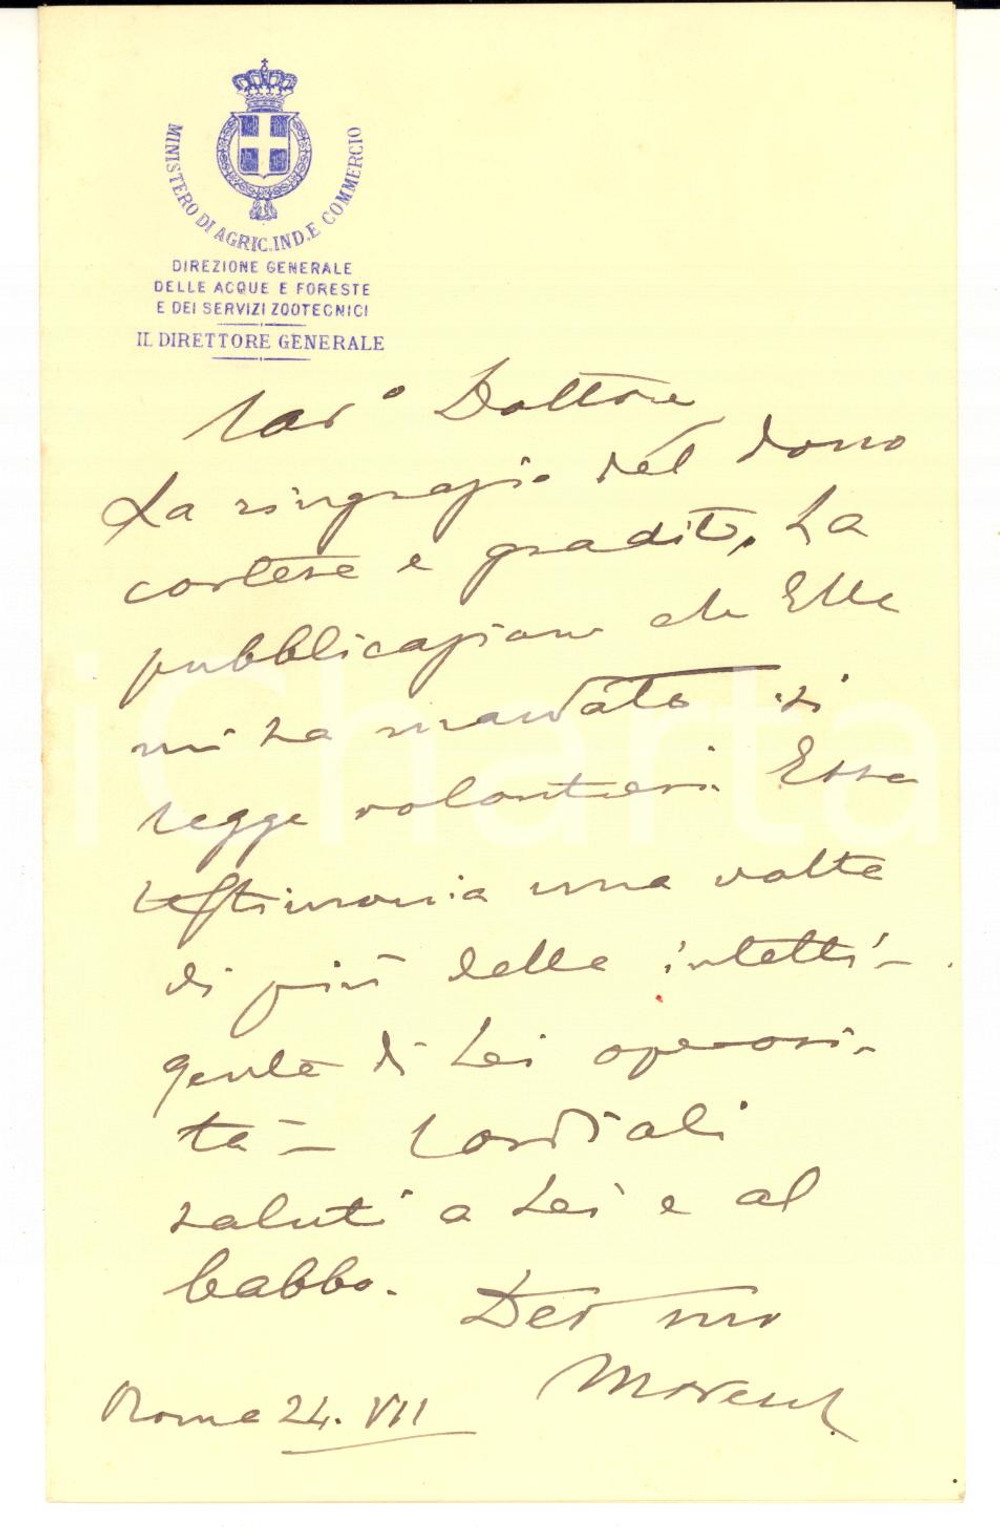 MINISTERO DI AGRIC. IND. E COMMERCIO
DIREZIONE GENERALE
DELLE ACQUE E FORESTE
E DEI SERVIZI ZOOTECNICI
IL DIRETTORE GENERALE
Car° Dottore
La ringrazio del dono
cortese e gradito. La
pubblicazione che Ella
mi ha mandato si
legge volontieri. Essa
testimonia una volta
di più della intelli-
gente di Lei operosi-
tà - Cordiali
saluti a Lei e al
babbo.
Dev mo
Roma 24. VII
iCharta